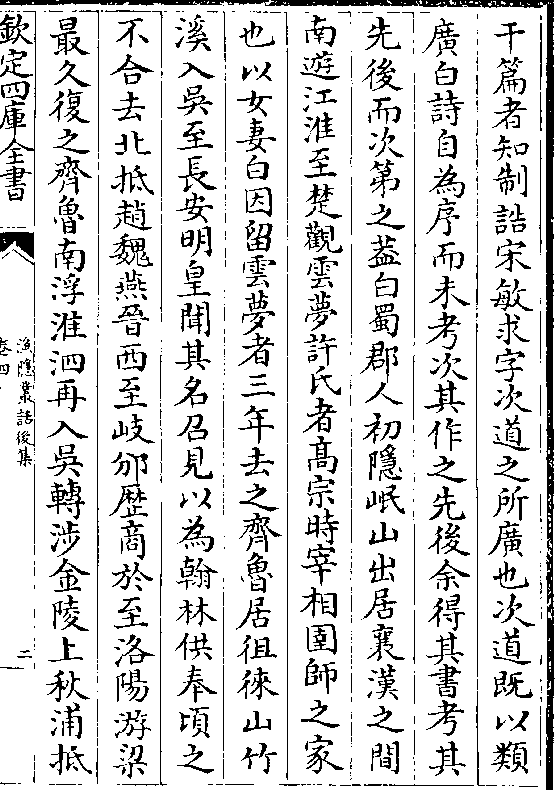 干篇者知制誥宋敏求字次道之所廣也次道既以類
廣白詩自為序而未考次其作之先後余得其書考其
先後而次第之葢白蜀郡人初隱岷山出居襄漢之間
南遊江淮至楚觀雲夢許氏者高宗時宰相圉師之家
也以女妻白因留雲夢者三年去之齊魯居徂徠山竹
溪入吳至長安明皇聞其名召見以為翰林供奉頃之
不合去北抵趙魏燕晉西至岐邠歷商於至洛陽游梁
最久復之齊魯南浮淮泗再入吳轉涉金陵上秋浦抵
欽定四庫全書
漁隱叢話後集
卷四
二